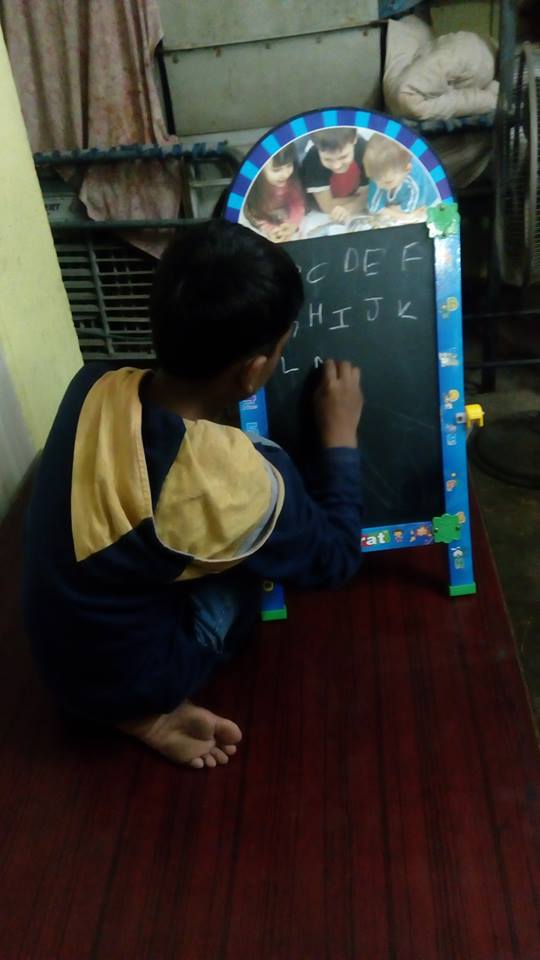 C D E F
H I J K
L
rati